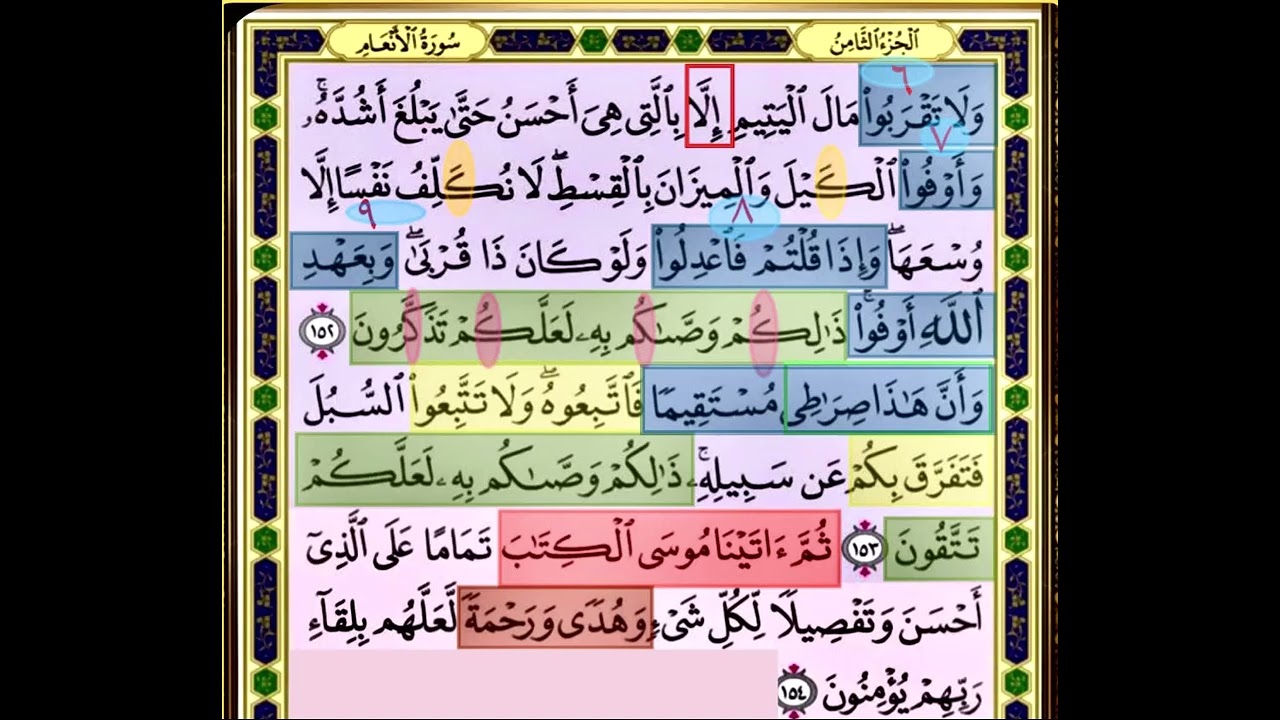 الجزء الثامن
سورة الأنعام
٦
وَلَا تَقْرَبُوا۟ مَالَ ٱلْيَتِيمِ إِلَّا بِٱلَّتِى هِىَ أَحْسَنُ حَتَّىٰ يَبْلُغَ أَشُدَّهُۥۚ
٧
وَأَوْفُوا۟ ٱلْكَيْلَ وَٱلْمِيزَانَ بِٱلْقِسْطِۖ لَا نُكَلِّفُ نَفْسًا إِلَّا
٨ ٩
وُسْعَهَاۖ وَإِذَا قُلْتُمْ فَٱعْدِلُوا۟ وَلَوْ كَانَ ذَا قُرْبَىٰۖ وَبِعَهْدِ
ٱللَّهِ أَوْفُوا۟ۚ ذَٰلِكُمْ وَصَّىٰكُم بِهِۦ لَعَلَّكُمْ تَذَكَّرُونَ ١٥٢
وَأَنَّ هَٰذَا صِرَٰطِى مُسْتَقِيمًا فَٱتَّبِعُوهُۖ وَلَا تَتَّبِعُوا۟ ٱلسُّبُلَ
فَتَفَرَّقَ بِكُمْ عَن سَبِيلِهِۦۚ ذَٰلِكُمْ وَصَّىٰكُم بِهِۦ لَعَلَّكُمْ
تَتَّقُونَ ١٥٣ ثُمَّ ءَاتَيْنَا مُوسَى ٱلْكِتَٰبَ تَمَامًا عَلَى ٱلَّذِىٓ
أَحْسَنَ وَتَفْصِيلًا لِّكُلِّ شَىْءٍ وَهُدًى وَرَحْمَةً لَّعَلَّهُم بِلِقَآءِ
رَبِّهِمْ يُؤْمِنُونَ ١٥٤